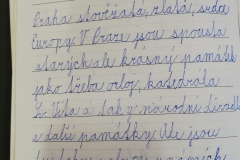 Praha stověžatá, zlatá, srdce
Evropy. V Praze jsou spousta
starých ale krásný památek
jako třeba orloj, katedrála
sv. Víta a tak z národní divadlo
a další památky. Ale jsou